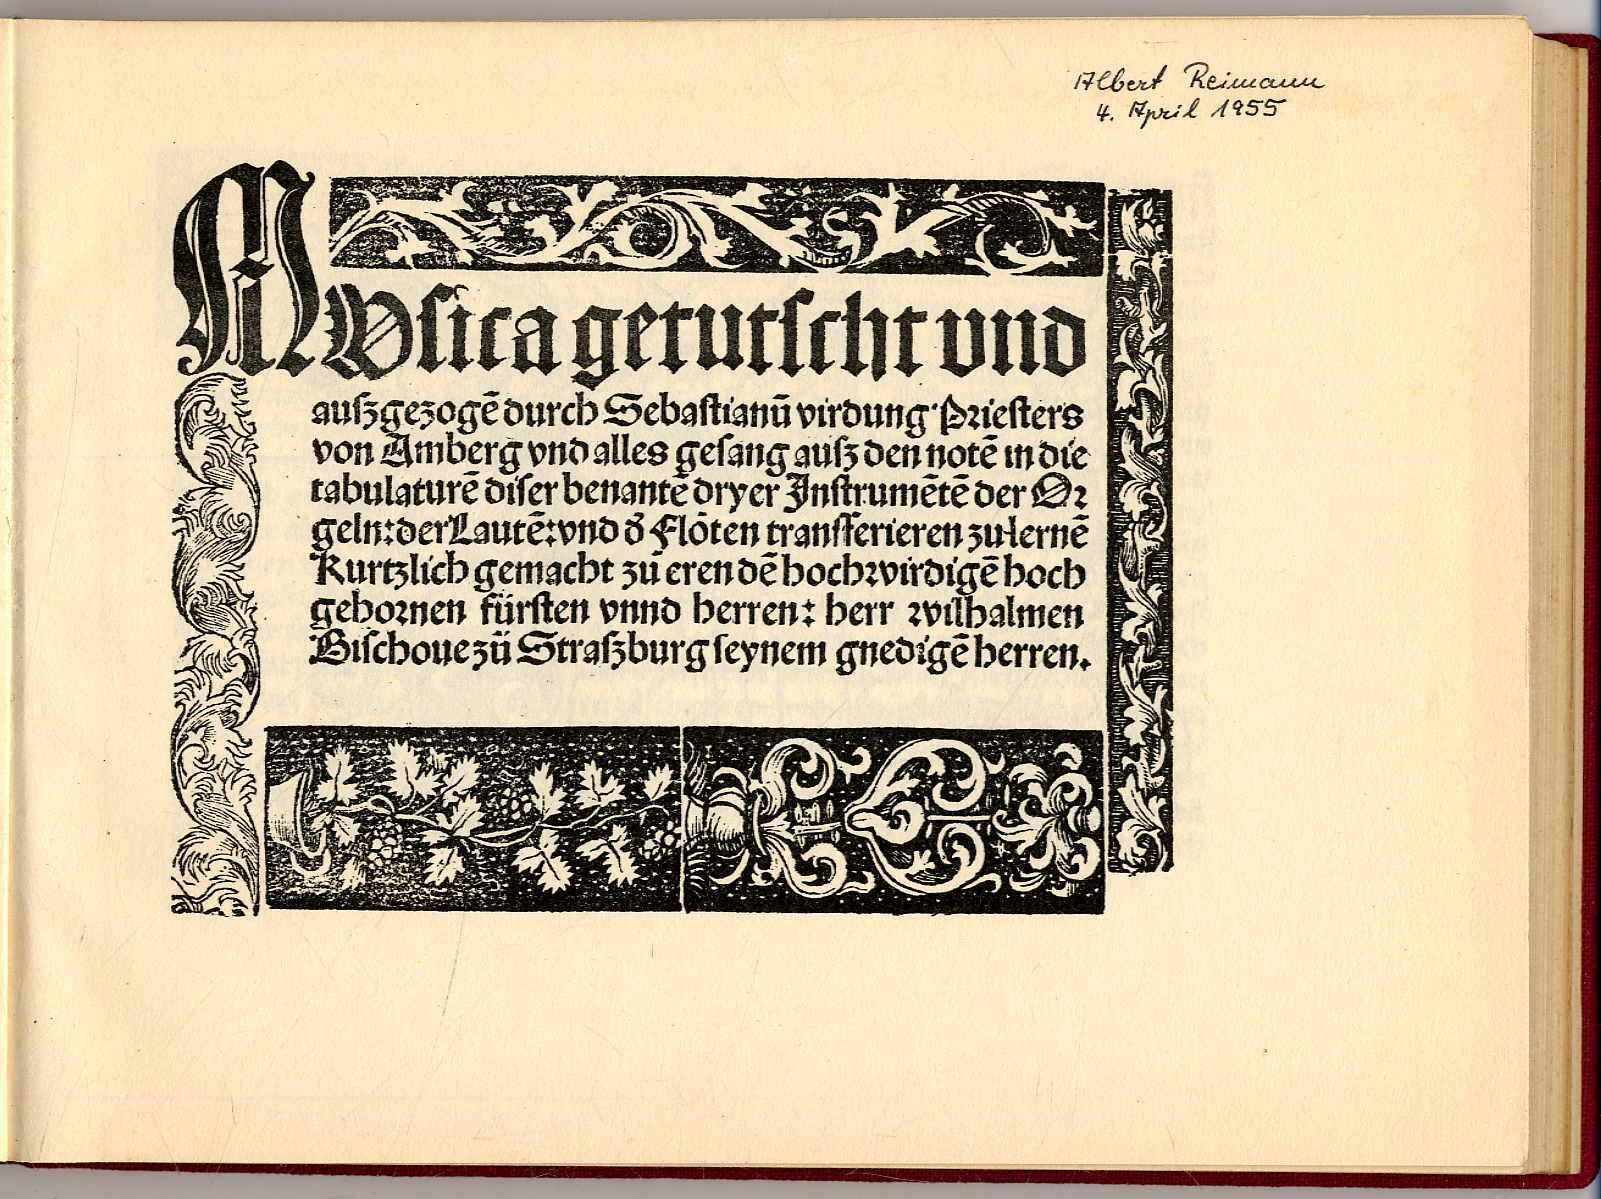 Albert Reimann
4. April 1955
MUsica getutscht vnd
auſzgezogē durch Sebastianū virdung Prieſters
von Amberg vnd alles geſang auſz den notē in die
tabulaturē diſer benantē dryer Inſtrumētē der Or
geln: der Lautē: vnd d̄ Flöten tranſferieren zu lernē
Kurtzlich gemacht zū eren dē hochwirdigē hoch
gebornen fürſten vnnd herren: herr wilhalmen
Biſchoue zū Straſzburg ſeynem gnedigē herren.